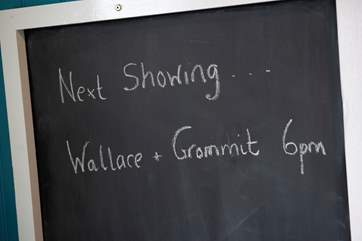 Next Showing...
Wallace + Grommit 6pm